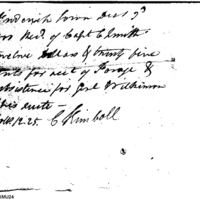 Frederick Town Decr 9th
Recd of Capt C Smith
twelve dollars & twenty five
cents for acct of Forage &
subsistence for Genl Wilkinson
& his suite —
Dolls 12.25. C Kimball